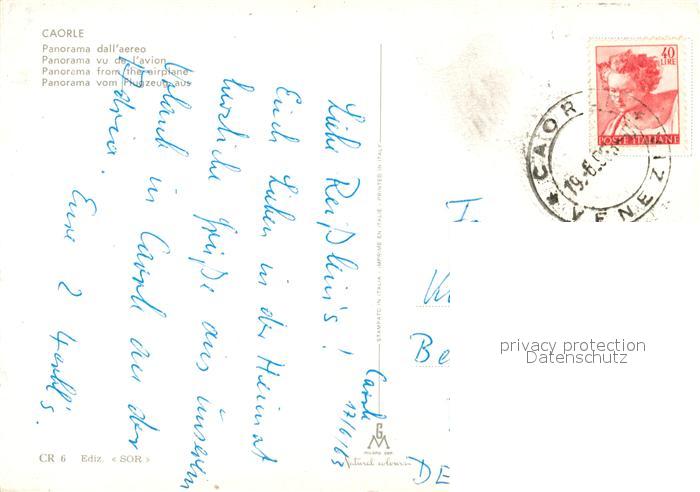 CAORLE
Panorama dall'aereo
Panorama vu de l'avion
Panorama from the airplane
Panorama vom Flugzeug aus
40
LIRE
POSTE ITALIANE
CAOR
VENEZI
19.-6.
Caorle
17/6/63
Liebe Reißlein's!
Euch Lieben in der Heimat
herzliche Grüße aus unserem
Urlaub in Caorle an der
Adria.
Eure 2
STAMPATO IN ITALIA - IMPRIMÉ EN ITALIE - PRINTED IN ITALY
Be
DE
privacy protection
Datenschutz
GM
Natural colours
CR 6 Ediz. «SOR»